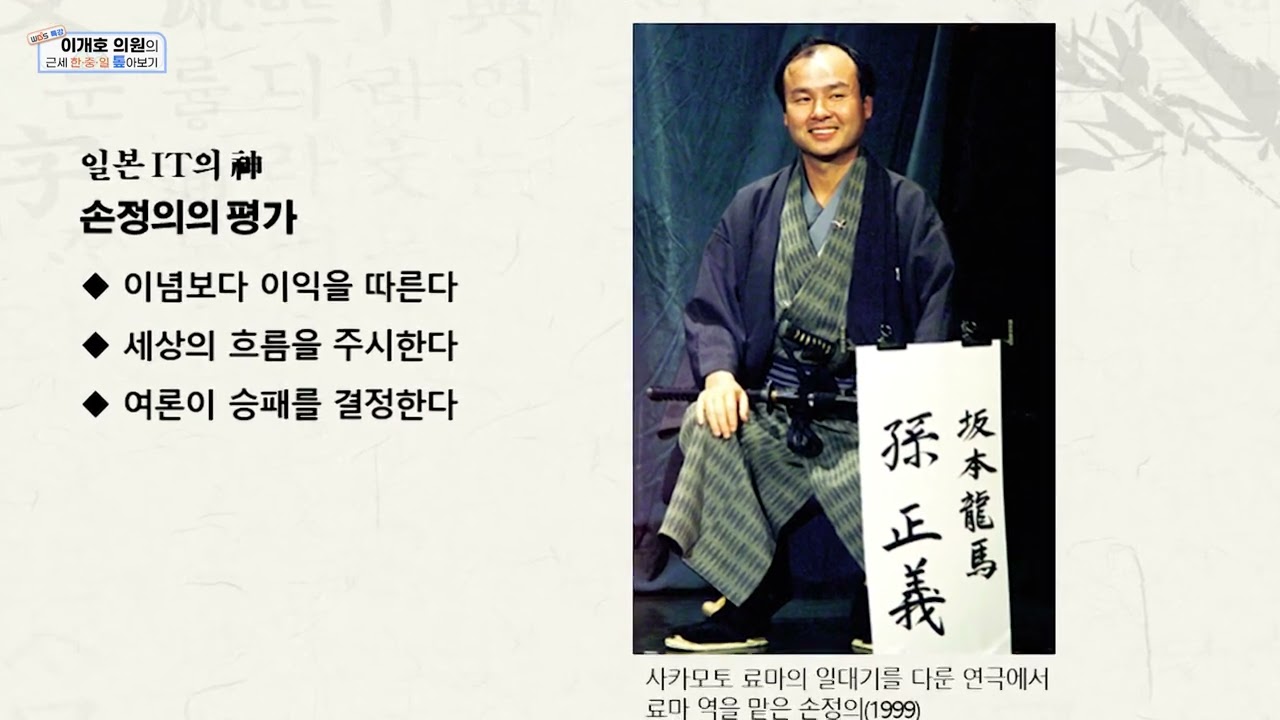 WDS 특강
이개호 의원의
근세 한·중·일 톺아보기
일본 IT의 神
손정의의 평가
◆ 이념보다 이익을 따른다
◆ 세상의 흐름을 주시한다
◆ 여론이 승패를 결정한다
坂本龍馬
孫正義
사카모토 료마의 일대기를 다룬 연극에서
료마 역을 맡은 손정의(1999)